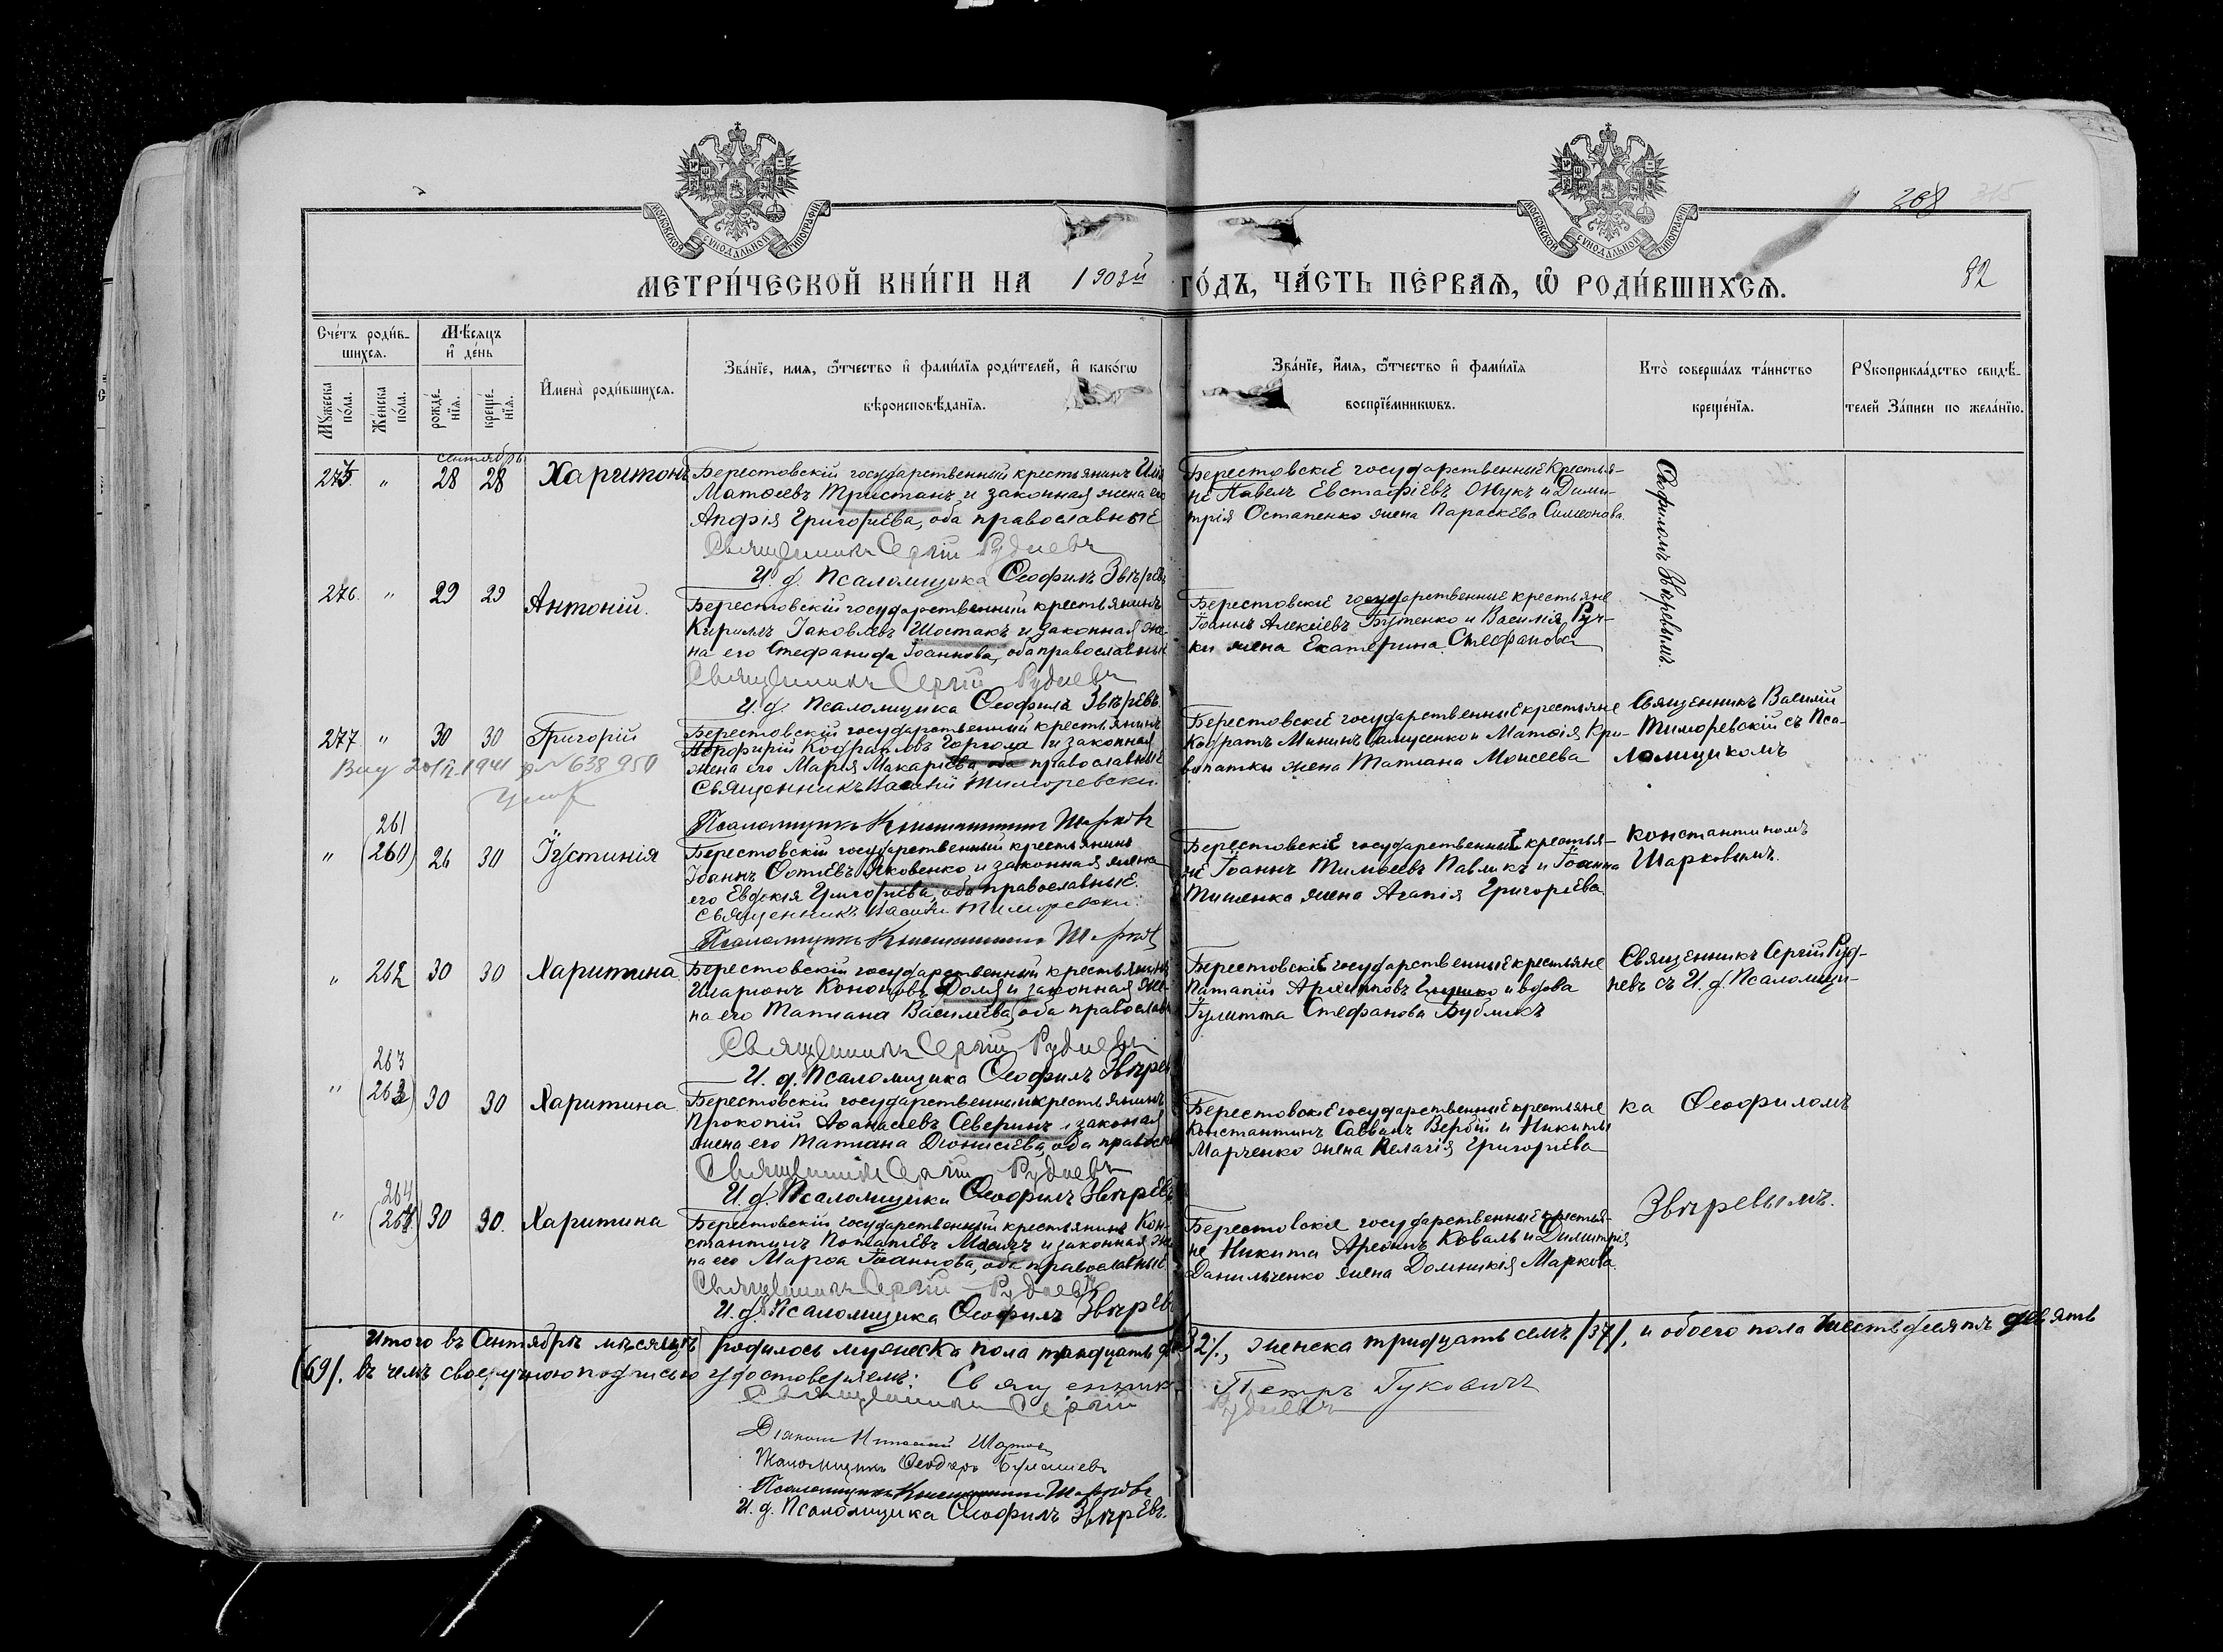 МОСКОВСКОЙ СѴНОДАЛЬНОЙ ТИПОГРАФІИ
МОСКОВСКОЙ СѴНОДАЛЬНОЙ ТИПОГРАФІИ
268 315
МЕТРИ́ЧЕСКОЙ КНИ́ГИ НА 1903й ГО́ДЪ, ЧА́СТЬ ПЕ́РВАѦ, Ѽ РОДИ́ВШИХСѦ.
82
Сче́тъ роди́в-
шихсѧ.
Мѣ́сяцъ
и҆ де́нь
Мꙋ́жеска
по́ла.
Же́нска
по́ла.
рожде́-
нїѧ.
креще́-
нїѧ.
И҆мена̀ роди́вшихсѧ.
Зва́нїе, имѧ, ѻ҆́тчество и҆ фами́лїѧ роди́телей, и҆ како́гѡ
вѣроисповѣ́данїѧ.
Зва́нїе, и҆́мѧ, ѻ҆́тчество и҆ фами́лїѧ
воспрїе́мникѡвъ.
Кто̀ соверша́лъ та́инство
креще́нїѧ.
Рꙋкоприкла́дство свидѣ́-
телей За́писи по жела́нїю.
Сентябрь
275. " 28 28 Харитонъ
Берестовскій государственный крестьянинъ Илія
Матѳеевъ Тристанъ и законная жена его
Анфія Григоріева, оба православные
Священникъ Сергій Рудневъ
И. д. Псаломщика Ѳеофилъ Звѣревъ
Берестовскіе государственные крестья-
не Павелъ Евстафіевъ Онукъ и Дими-
трія Остапенко жена Параскева Симеонова.
Ѳеофиломъ Звѣревымъ.
276. " 29 29 Антоній.
Берестовскій государственный крестьянинъ
Кириллъ Іаковлевъ Шостакъ и законная же-
на его Стефанида Іоаннова, оба православные
Священникъ Сергій Рудневъ
И. д. Псаломщика Ѳеофилъ Звѣревъ.
Берестовскіе государственные крестьяне
Іоаннъ Алексіевъ Бутенко и Василія Руч-
ки жена Екатерина Стефанова
277 " 30 30 Григорій
1941 № 638950
Берестовскій государственный крестьянинъ
Порфирій Кодратовъ Горгола и законная
жена его Марія Макаріева оба православные
Священникъ Василій Тиморевскій.
Псаломщикъ Константинъ Шарковъ
Берестовскіе государственные крестьяне
Кодратъ Мининъ Самусенко и Матѳія Кри-
вопатки жена Татіана Моисеева
Священникъ Василій
Тиморевскій съ Пса-
ломщикомъ
261
" (260) 26 30 Іустинія
Берестовскій государственный крестьянинъ
Іоаннъ Ѳотіевъ Яковенко и законная жена
его Евдокія Григоріева, оба православные.
Священникъ Василій Тиморевскій.
Псаломщикъ Константинъ Шарковъ
Берестовскіе государственные крестья-
не Іоаннъ Тимоѳеевъ Павликъ и Іоанна
Тишенко жена Агапія Григоріева
Константиномъ
Шарковымъ.
" 262 30 30 Харитина
Берестовскій государственный крестьянинъ
Иларіонъ Кононовъ Доля и законная же-
на его Татіана Василіева, оба православн
Священникъ Сергій Рудневъ
И. д. Псаломщика Ѳеофилъ Звѣрев
Берестовскіе государственные крестьяне
Патапій Архиповъ Глушко и вдова
Іулитта Стефанова Бубликъ
Священникъ Сергій Руд-
невъ съ И. д. Псаломщи-
263
" (262) 30 30 Харитина
Берестовскій государственный крестьянинъ
Прокопій Аѳанасіевъ Северинъ и законная
жена его Татіана Діонисіева, оба православ
Священникъ Сергій Рудневъ
И. д. Псаломщика Ѳеофилъ Звѣревъ
Берестовскіе государственные крестьяне
Константинъ Саввинъ Вербій и Никиты
Марченко жена Пелагія Григоріева
ка Ѳеофиломъ
264
" (264) 30 30. Харитина
Берестовскій государственный крестьянинъ Кон-
стантинъ Потапіевъ Мосичъ и законная же
на его Марѳа Іоаннова, оба православные.
Священникъ Сергій Рудневъ
И. д. Псаломщика Ѳеофилъ Звѣрев
Берестовскіе государственные крестья-
не Никита Арсѳинъ Коваль и Димитрія
Данильченко жена Домникія Маркова.
Звѣревымъ.
Итого въ Сентябрѣ мѣсяцѣ родилось мужеска пола тридцать два /32/, женска тридцать семь /37/, и обоего пола шестьдесятъ девять
/69/. въ чемъ своеручною подписью удостоверяемъ: Священникъ Петръ Гуковичъ
Священникъ Сергій Рудневъ
Діаконъ
Псаломщикъ Ѳеодоръ
Псаломщикъ Константинъ Шарковъ
И. д. Псаломщика Ѳеофилъ Звѣревъ.